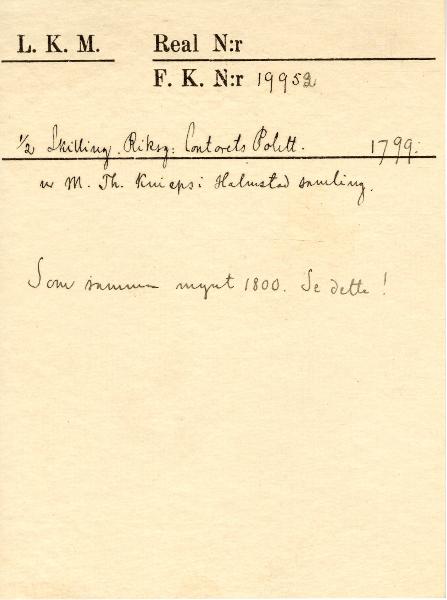 L. K. M. Real N:r
F. K. N:r 19952
1/2 Skilling. Riksg: Contorets Polett. 1799.
ur M. Th. Knieps i Halmstad samling.
Som samma mynt 1800. Se dette!